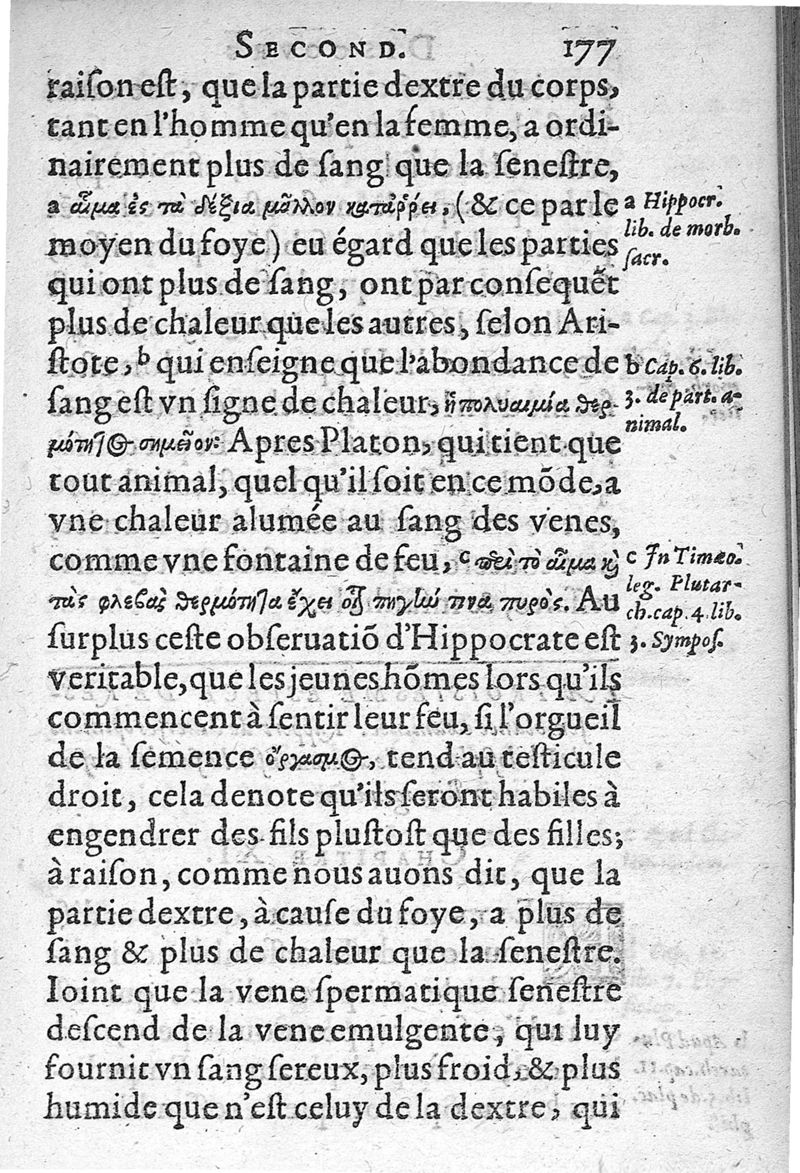 SECOND. 177
raiſon eſt, que la partie dextre du corps,
tant en l'homme qu'en la femme, a ordi-
nairement plus de ſang que la ſeneſtre,
a αἷμα ἐς τὰ δέξια μᾶλλον καταῤῥεῖ, (& ce par le
moyen du foye) eu égard que les parties
qui ont plus de ſang, ont par conſequẽt
plus de chaleur que les autres, ſelon Ari-
ſtote, b qui enſeigne que l'abondance de
ſang eſt vn ſigne de chaleur, ἡ πολυαιμία θερ-
μότητος σημεῖον: Apres Platon, qui tient que
tout animal, quel qu'il ſoit en ce mõde, a
vne chaleur alumée au ſang des venes,
comme vne fontaine de feu, c περὶ τὸ αἷμα καὶ
τὰς φλέβας θερμότητα ἔχει οἷον πηγὴν τινα πυρὸς. Au
ſurplus ceſte obſeruatiõ d'Hippocrate eſt
veritable, que les jeunes hõmes lors qu'ils
commencent à ſentir leur feu, ſi l'orgueil
de la ſemence ὄργασμος, tend au teſticule
droit, cela denote qu'ils ſeront habiles à
engendrer des fils pluſtoſt que des filles;
à raiſon, comme nous auons dit, que la
partie dextre, à cauſe du foye, a plus de
ſang & plus de chaleur que la ſeneſtre.
Ioint que la vene ſpermatique ſeneſtre
deſcend de la vene emulgente, qui luy
fournit vn ſang ſereux, plus froid, & plus
humide que n'eſt celuy de la dextre, qui
a Hippocr.
lib. de morb.
ſacr.
b Cap. 6. lib.
3. de part. a-
nimal.
c In Timæo.
leg. Plutar-
ch. cap. 4. lib.
3. Sympoſ.